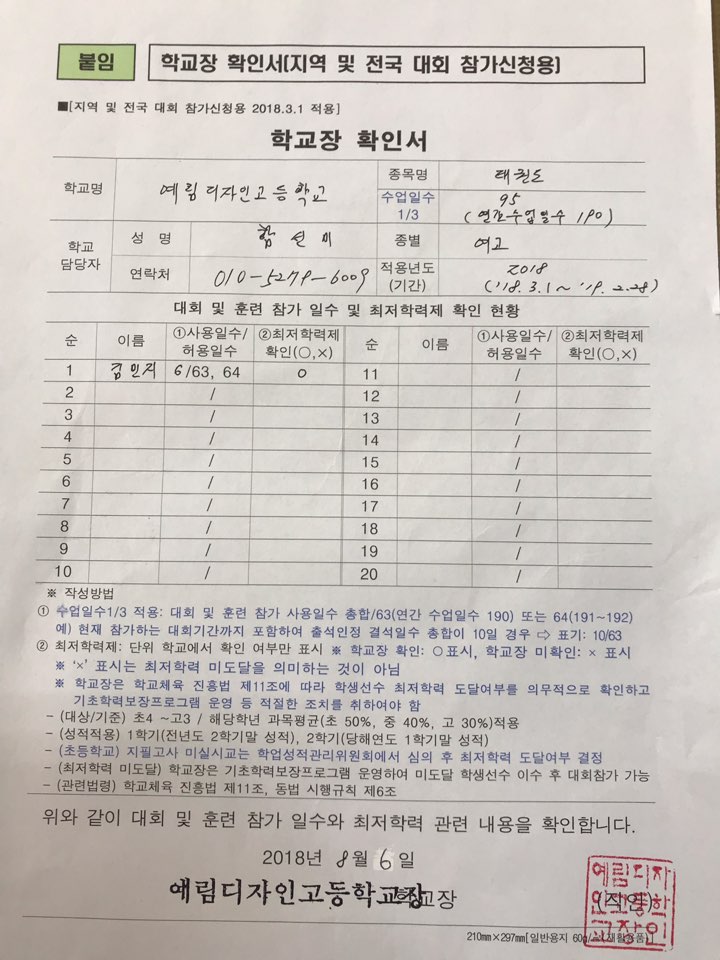 붙임
학교장 확인서(지역 및 전국 대회 참가신청용)
■[지역 및 전국 대회 참가신청용 2018.3.1 적용]
학교장 확인서
학교명 예림디자인고등학교 종목명 태권도
수업일수 1/3 95 (연간수업일수 190)
학교 담당자 성 명 함선미 종별 여고
연락처 010-5279-6009 적용년도 (기간) 2018 ('18.3.1~'19.2.28)
대회 및 훈련 참가 일수 및 최저학력제 확인 현황
순 이름 ①사용일수/허용일수 ②최저학력제 확인(○,×) 순 이름 ①사용일수/허용일수 ②최저학력제 확인(○,×)
1 김민지 6/63, 64 ○ 11 /
2 / 12 /
3 / 13 /
4 / 14 /
5 / 15 /
6 / 16 /
7 / 17 /
8 / 18 /
9 / 19 /
10 / 20 /
※ 작성방법
① 수업일수1/3 적용: 대회 및 훈련 참가 사용일수 총합/63(연간 수업일수 190) 또는 64(191~192)
예) 현재 참가하는 대회기간까지 포함하여 출석인정 결석일수 총합이 10일 경우 ⇨ 표기: 10/63
② 최저학력제: 단위 학교에서 확인 여부만 표시 ※ 학교장 확인: ○표시, 학교장 미확인: × 표시
※ '×' 표시는 최저학력 미도달을 의미하는 것이 아님
※ 학교장은 학교체육 진흥법 제11조에 따라 학생선수 최저학력 도달여부를 의무적으로 확인하고
기초학력보장프로그램 운영 등 적절한 조치를 취하여야 함
- (대상/기준) 초4 ~고3 / 해당학년 과목평균(초 50%, 중 40%, 고 30%)적용
- (성적적용) 1학기(전년도 2학기말 성적), 2학기(당해연도 1학기말 성적)
- (초등학교) 지필고사 미실시교는 학업성적관리위원회에서 심의 후 최저학력 도달여부 결정
- (최저학력 미도달) 학교장은 기초학력보장프로그램 운영하여 미도달 학생선수 이수 후 대회참가 가능
- (관련법령) 학교체육 진흥법 제11조, 동법 시행규칙 제6조
위와 같이 대회 및 훈련 참가 일수와 최저학력 관련 내용을 확인합니다.
2018년 8월 6일
예림디자인고등학교장 학교장 (직인)
예림디자인고등학교장인
210㎜×297㎜[일반용지 60g/㎡(재활용품)]